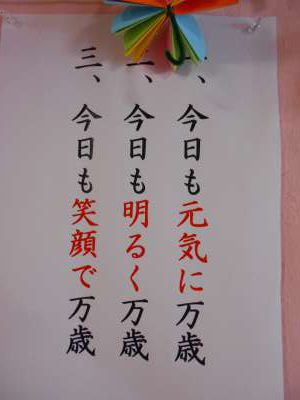 一、今日も元気に万歳
二、今日も明るく万歳
三、今日も笑顔で万歳